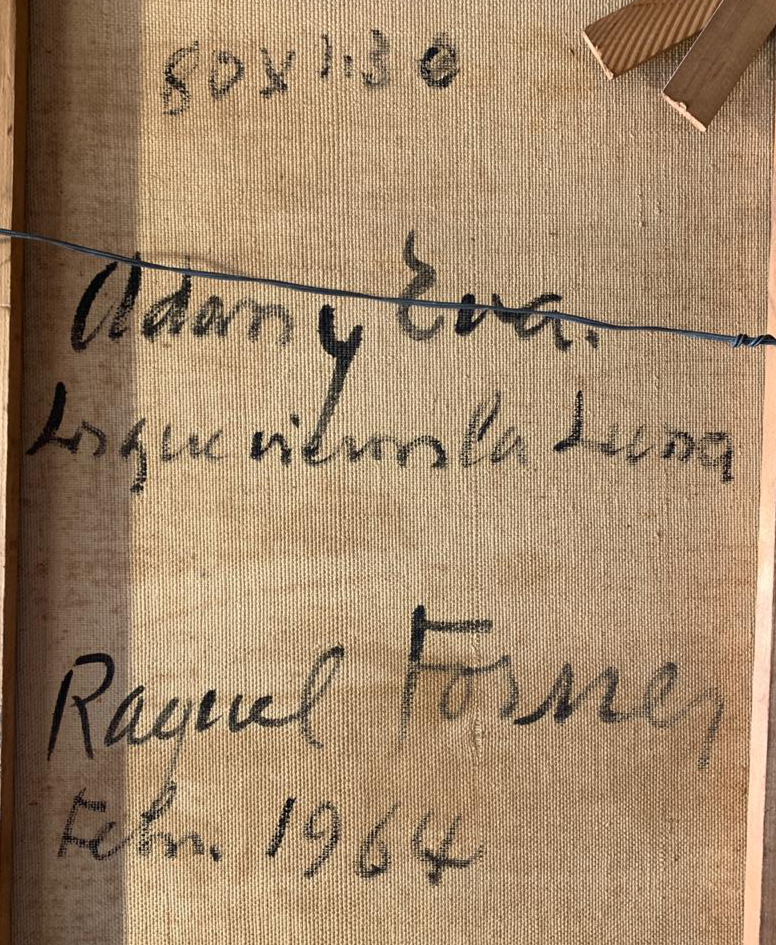 80 x 1.30
Adan y Eva.
Los que vieron la Luna
Raquel Forner
Febr. 1964